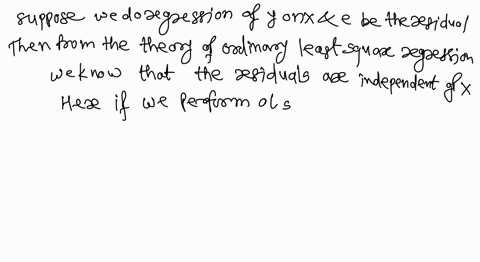 suppose we do regression of y on x & e be the residual
Then from the theory of ordinary least-square regression
we know that the residuals are independent of x
Here if we perform ols